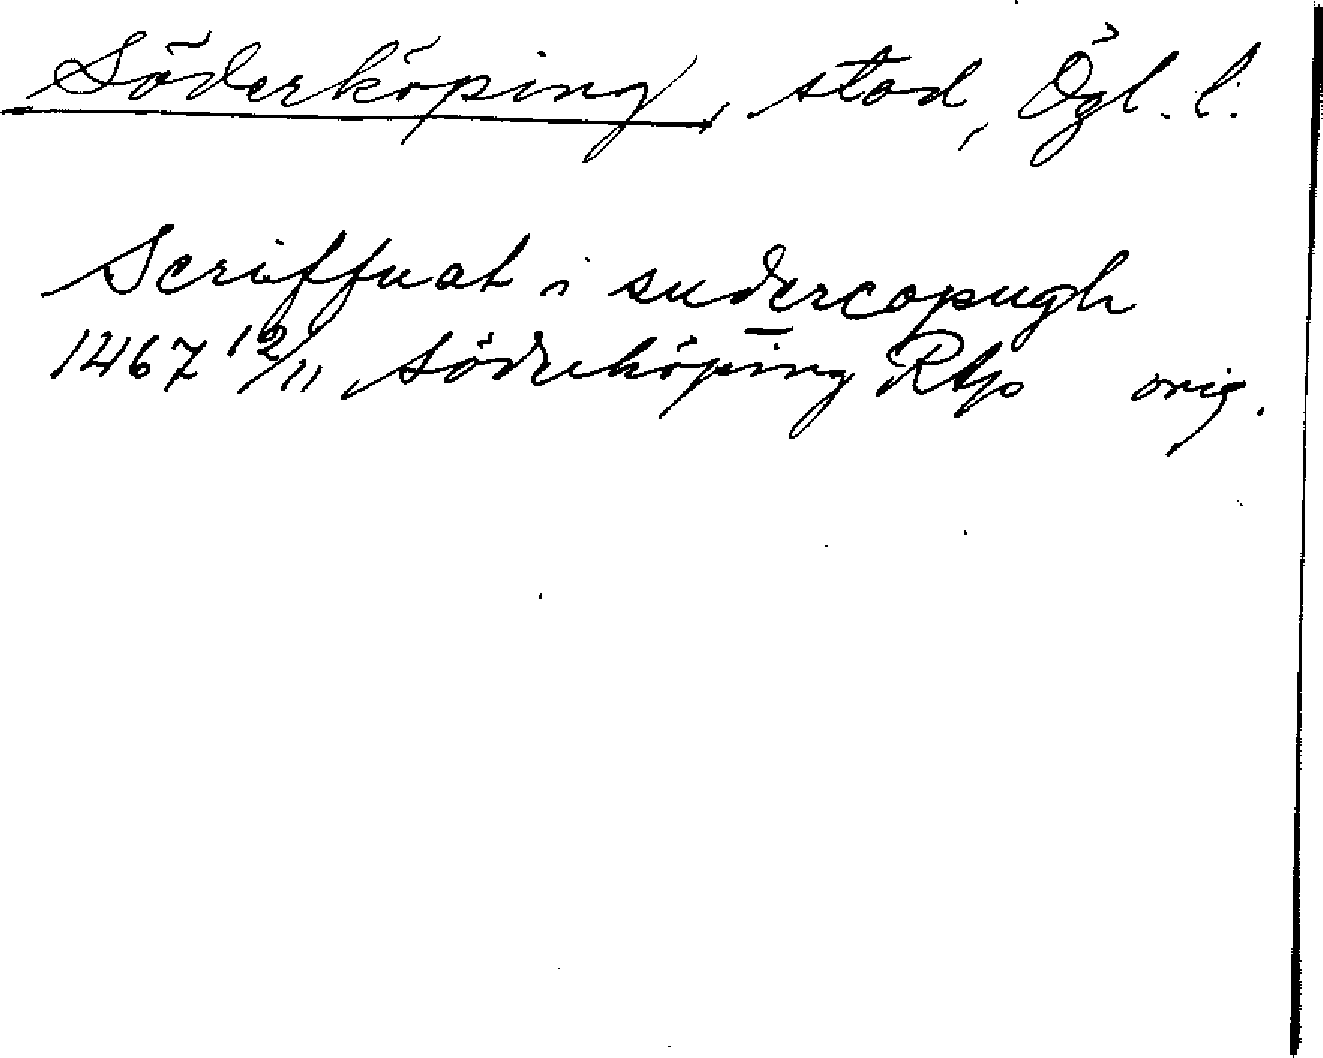 Söderköping, stad, Ögl. l.
Scriffuat i sudercopugh
1467 12/11 Söderköping Rtp orig.